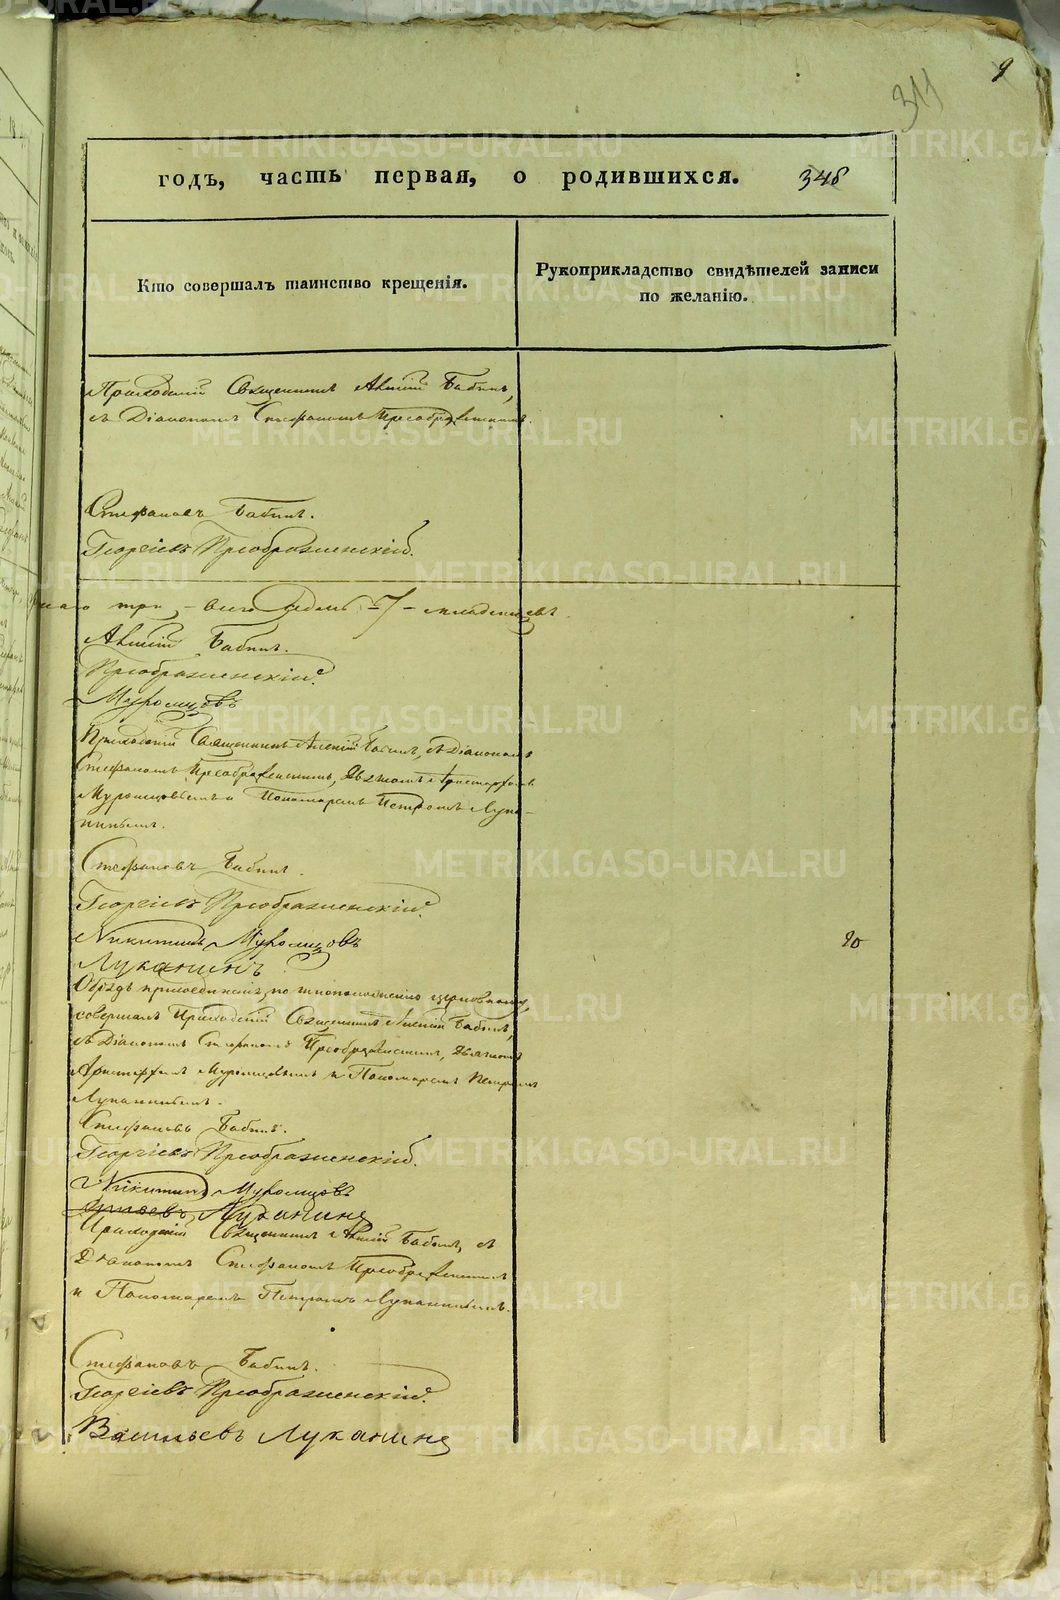 9
311
годъ, часть первая, о родившихся. 348
Кто совершалъ таинство крещенія.
Рукоприкладство свидѣтелей записи
по желанію.
Приходскій Священникъ Алексій Бабинъ,
съ Діакономъ Стефаномъ Преображенскимъ.
Стефановъ Бабинъ.
Георгіевъ Преображенскій.
три, – всего седмь – 7 – младенцевъ.
Алексій Бабинъ.
Преображенскій.
Муромцовъ
Приходскій Священникъ Алексій Бабинъ, съ Діакономъ
Стефаномъ Преображенскимъ, Дьячкомъ Аристархомъ
Муромцовымъ и Пономаремъ Петромъ Лука-
нинымъ.
Стефановъ Бабинъ.
Георгіевъ Преображенскій.
Никитинъ Муромцовъ
Луканинъ
20
Обрядъ присоединенія, по чиноположенію церковному,
совершалъ Приходскій Священникъ Алексій Бабинъ,
съ Діакономъ Стефаномъ Преображенскимъ, Дьячкомъ
Аристархомъ Муромцовымъ и Пономаремъ Петромъ
Луканинымъ.
Стефановъ Бабинъ.
Георгіевъ Преображенскій.
Никитинъ Муромцовъ
Луканинъ
Приходскій Священникъ Алексій Бабинъ, съ
Діакономъ Стефаномъ Преображенскимъ
и Пономаремъ Петромъ Луканинымъ.
Стефановъ Бабинъ.
Георгіевъ Преображенскій.
Васильевъ Луканинъ
METRIKI.GASO-URAL.RU